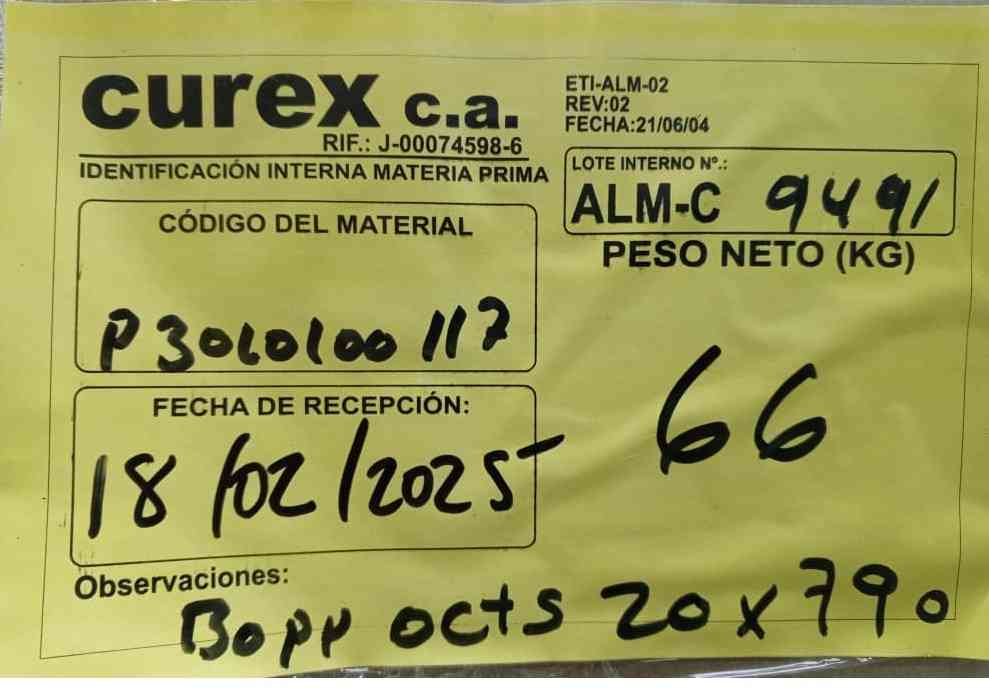 curex c.a.
RIF.: J-00074598-6
IDENTIFICACIÓN INTERNA MATERIA PRIMA
ETI-ALM-02
REV:02
FECHA:21/06/04
LOTE INTERNO Nº.:
ALM-C 9491
CÓDIGO DEL MATERIAL
P3010100117
PESO NETO (KG)
66
FECHA DE RECEPCIÓN:
18/02/2025
Observaciones:
Bopp octs 20 x 790